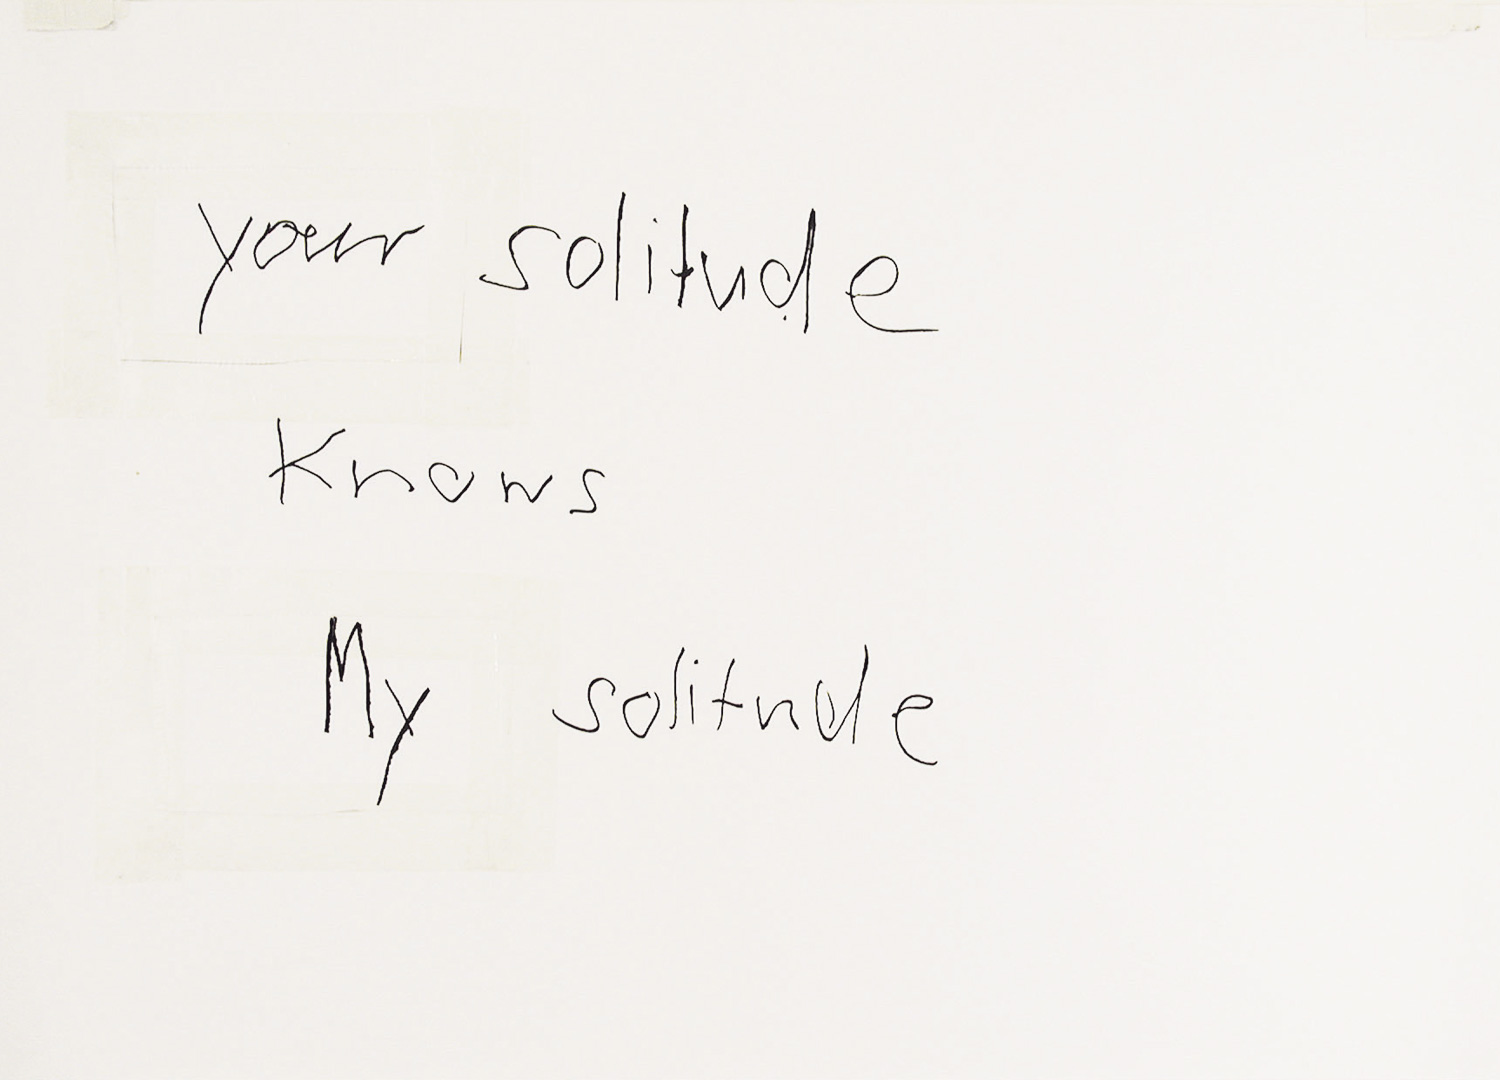 your solitude
Knows
My solitude